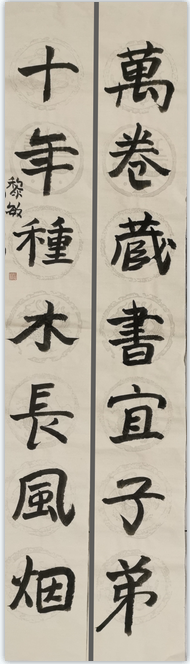 萬卷藏書宜子弟
十年種木長風烟
黎敏